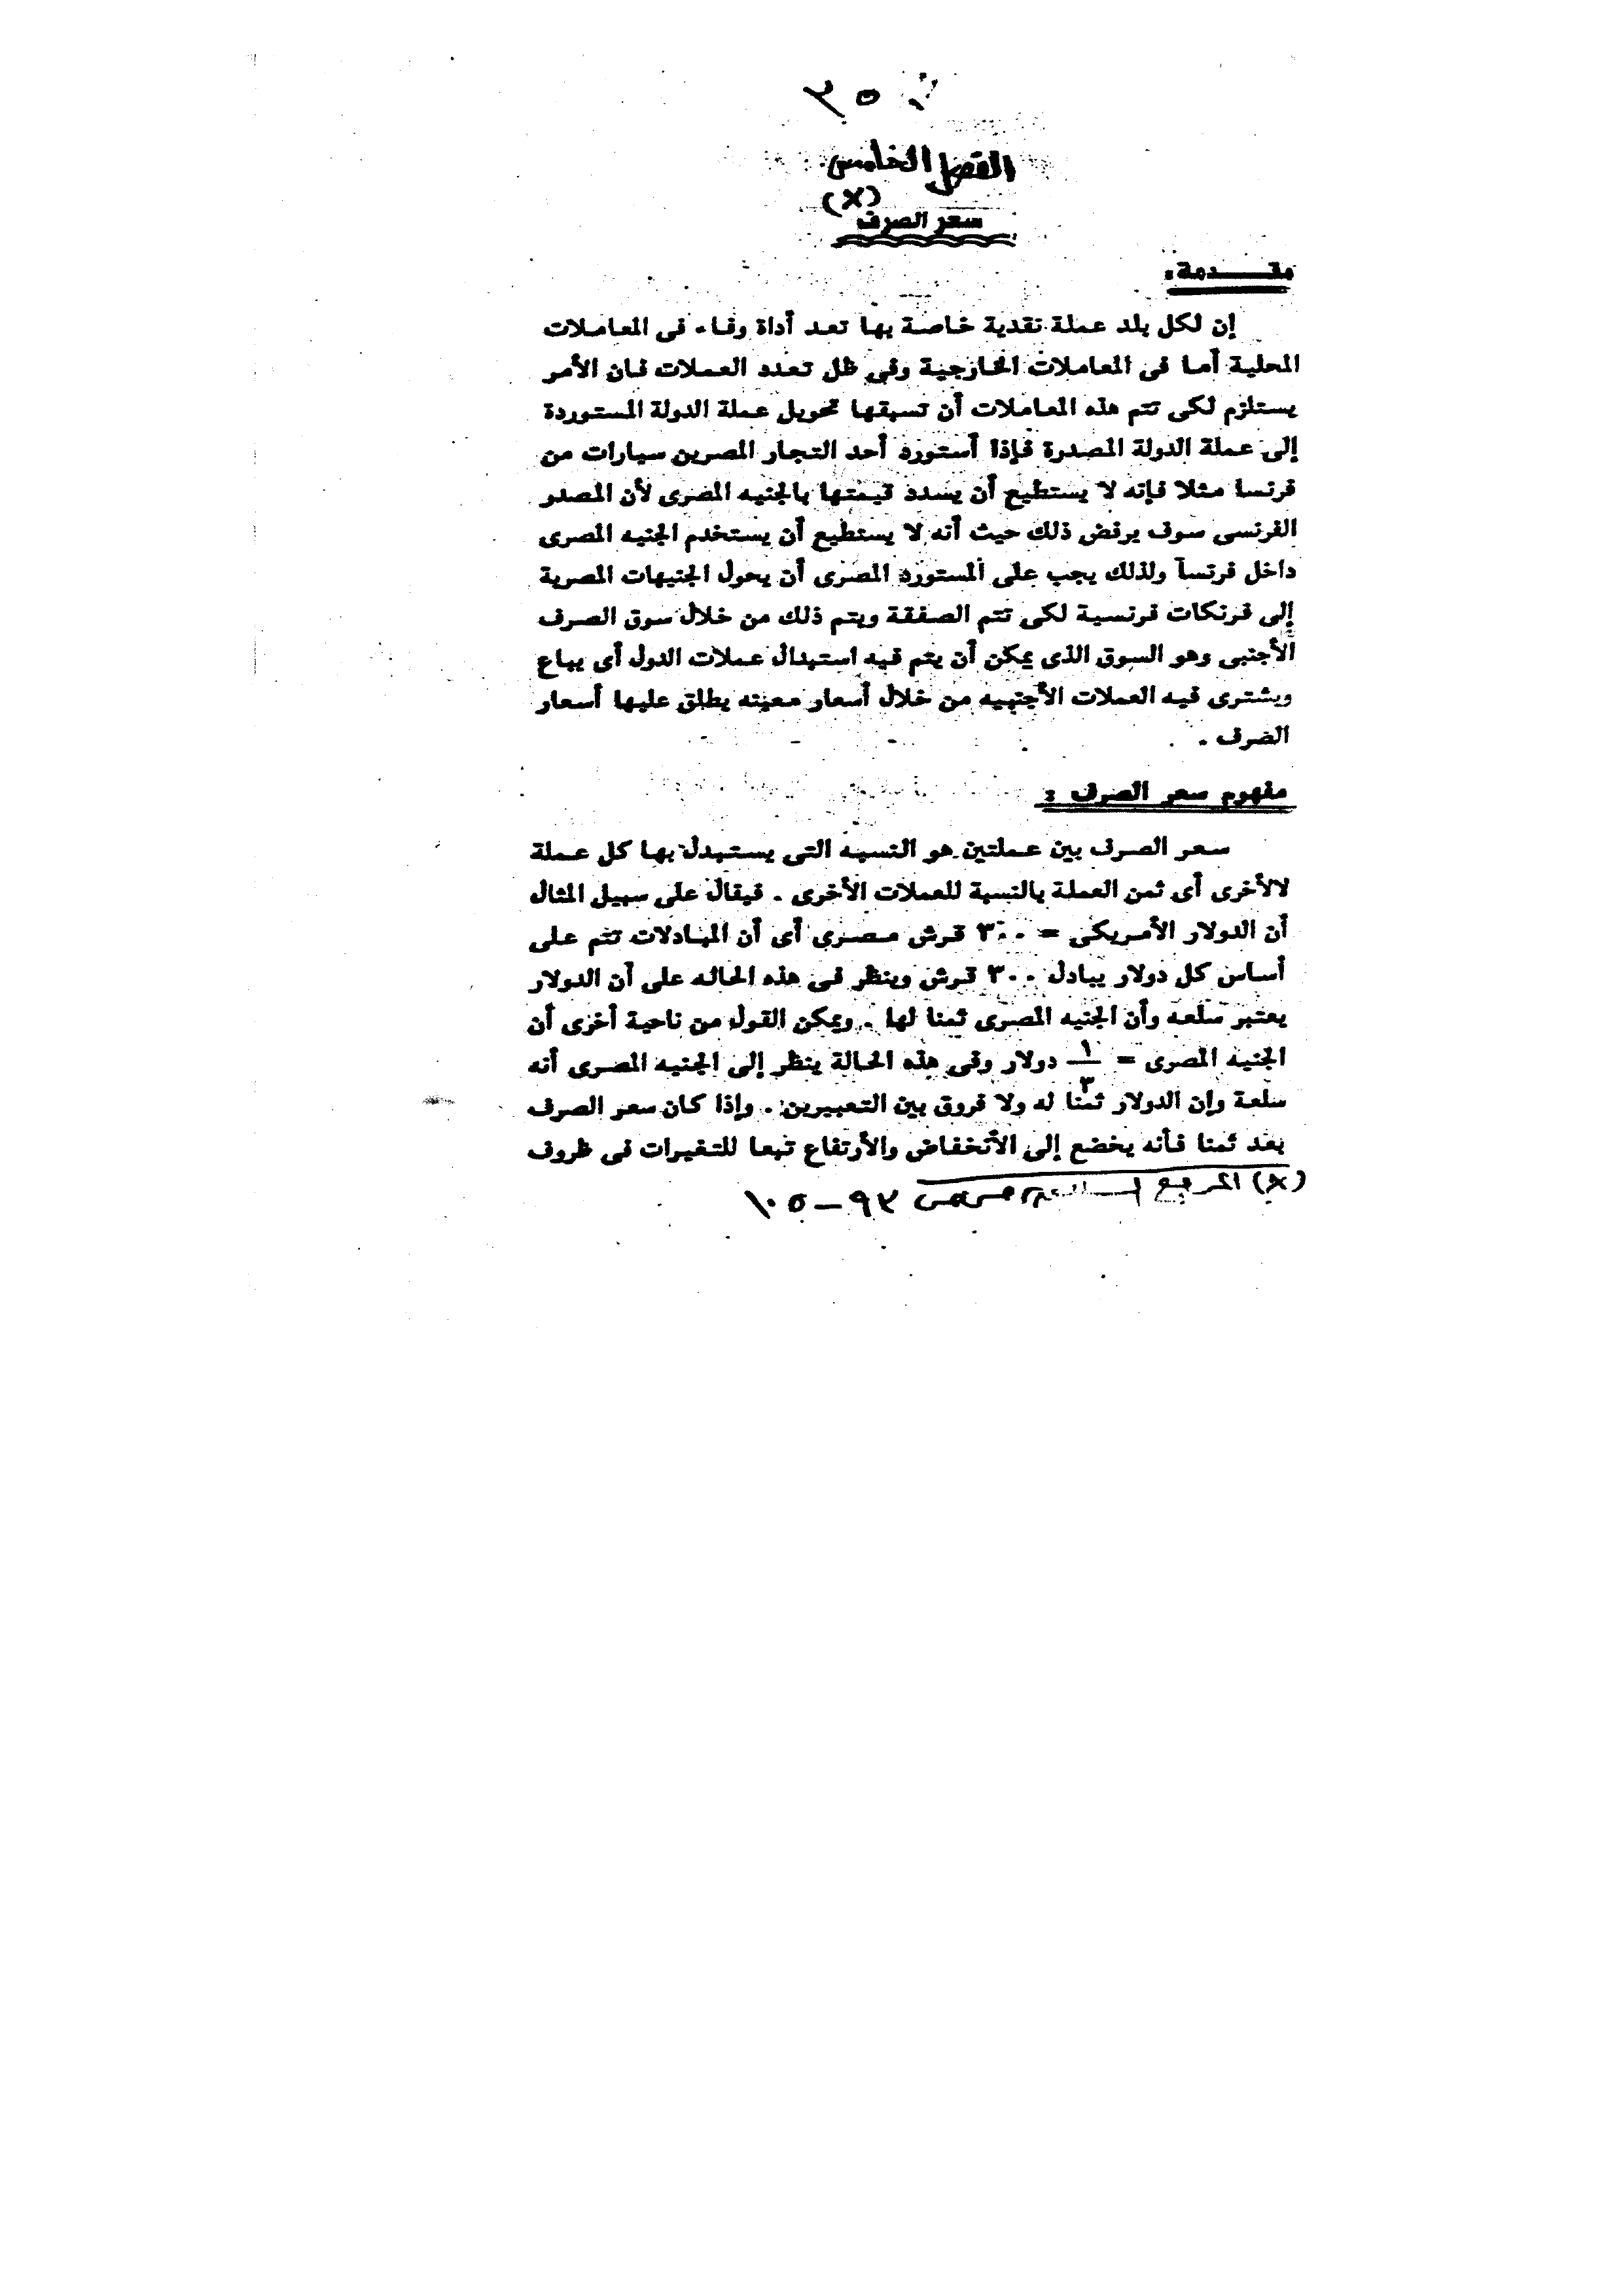 ٣٥
الفصل الخامس
(x)
سعر الصرف
مقـــدمة:
إن لكل بلد عملة نقدية خاصة بها تعد أداة وفاء فى المعاملات
المحلية أما فى المعاملات الخارجية وفى ظل تعدد العملات فان الأمر
يستلزم لكى تتم هذه المعاملات أن تسبقها تحويل عملة الدولة المستوردة
إلى عملة الدولة المصدرة فإذا أستورد أحد التجار المصرين سيارات من
فرنسا مثلا فإنه لا يستطيع أن يسدد قيمتها بالجنيه المصرى لأن المصدر
الفرنسى سوف يرفض ذلك حيث أنه لا يستطيع أن يستخدم الجنيه المصرى
داخل فرنسا ولذلك يجب على المستورد المصرى أن يحول الجنيهات المصرية
إلى فرنكات فرنسية لكى تتم الصفقة ويتم ذلك من خلال سوق الصرف
الأجنبى وهو السوق الذى يمكن أن يتم فيه استبدال عملات الدول أى يباع
ويشترى فيه العملات الأجنبيه من خلال أسعار معينه يطلق عليها أسعار
الصرف .
مفهوم سعر الصرف :
سعر الصرف بين عملتين هو النسبه التى يستبدل بها كل عملة
لالأخرى أى ثمن العملة بالنسبة للعملات الأخرى . فيقال على سبيل المثال
أن الدولار الأمريكى = ٣٠٠ قرش مصرى أى أن المبادلات تتم على
أساس كل دولار يبادل ٣٠٠ قرش وينظر فى هذه الحاله على أن الدولار
يعتبر سلعه وأن الجنيه المصرى ثمنا لها . ويمكن القول من ناحية أخرى أن
الجنيه المصرى = ١/٣ دولار وفى هذه الحالة ينظر إلى الجنيه المصرى أنه
سلعة وإن الدولار ثمنا له ولا فروق بين التعبيرين . وإذا كان سعر الصرف
يعد ثمنا فأنه يخضع إلى الأنخفاض والأرتفاع تبعا للتغيرات فى ظروف
(x) المرجع السابق ص ص ٩٣ - ١٠٥